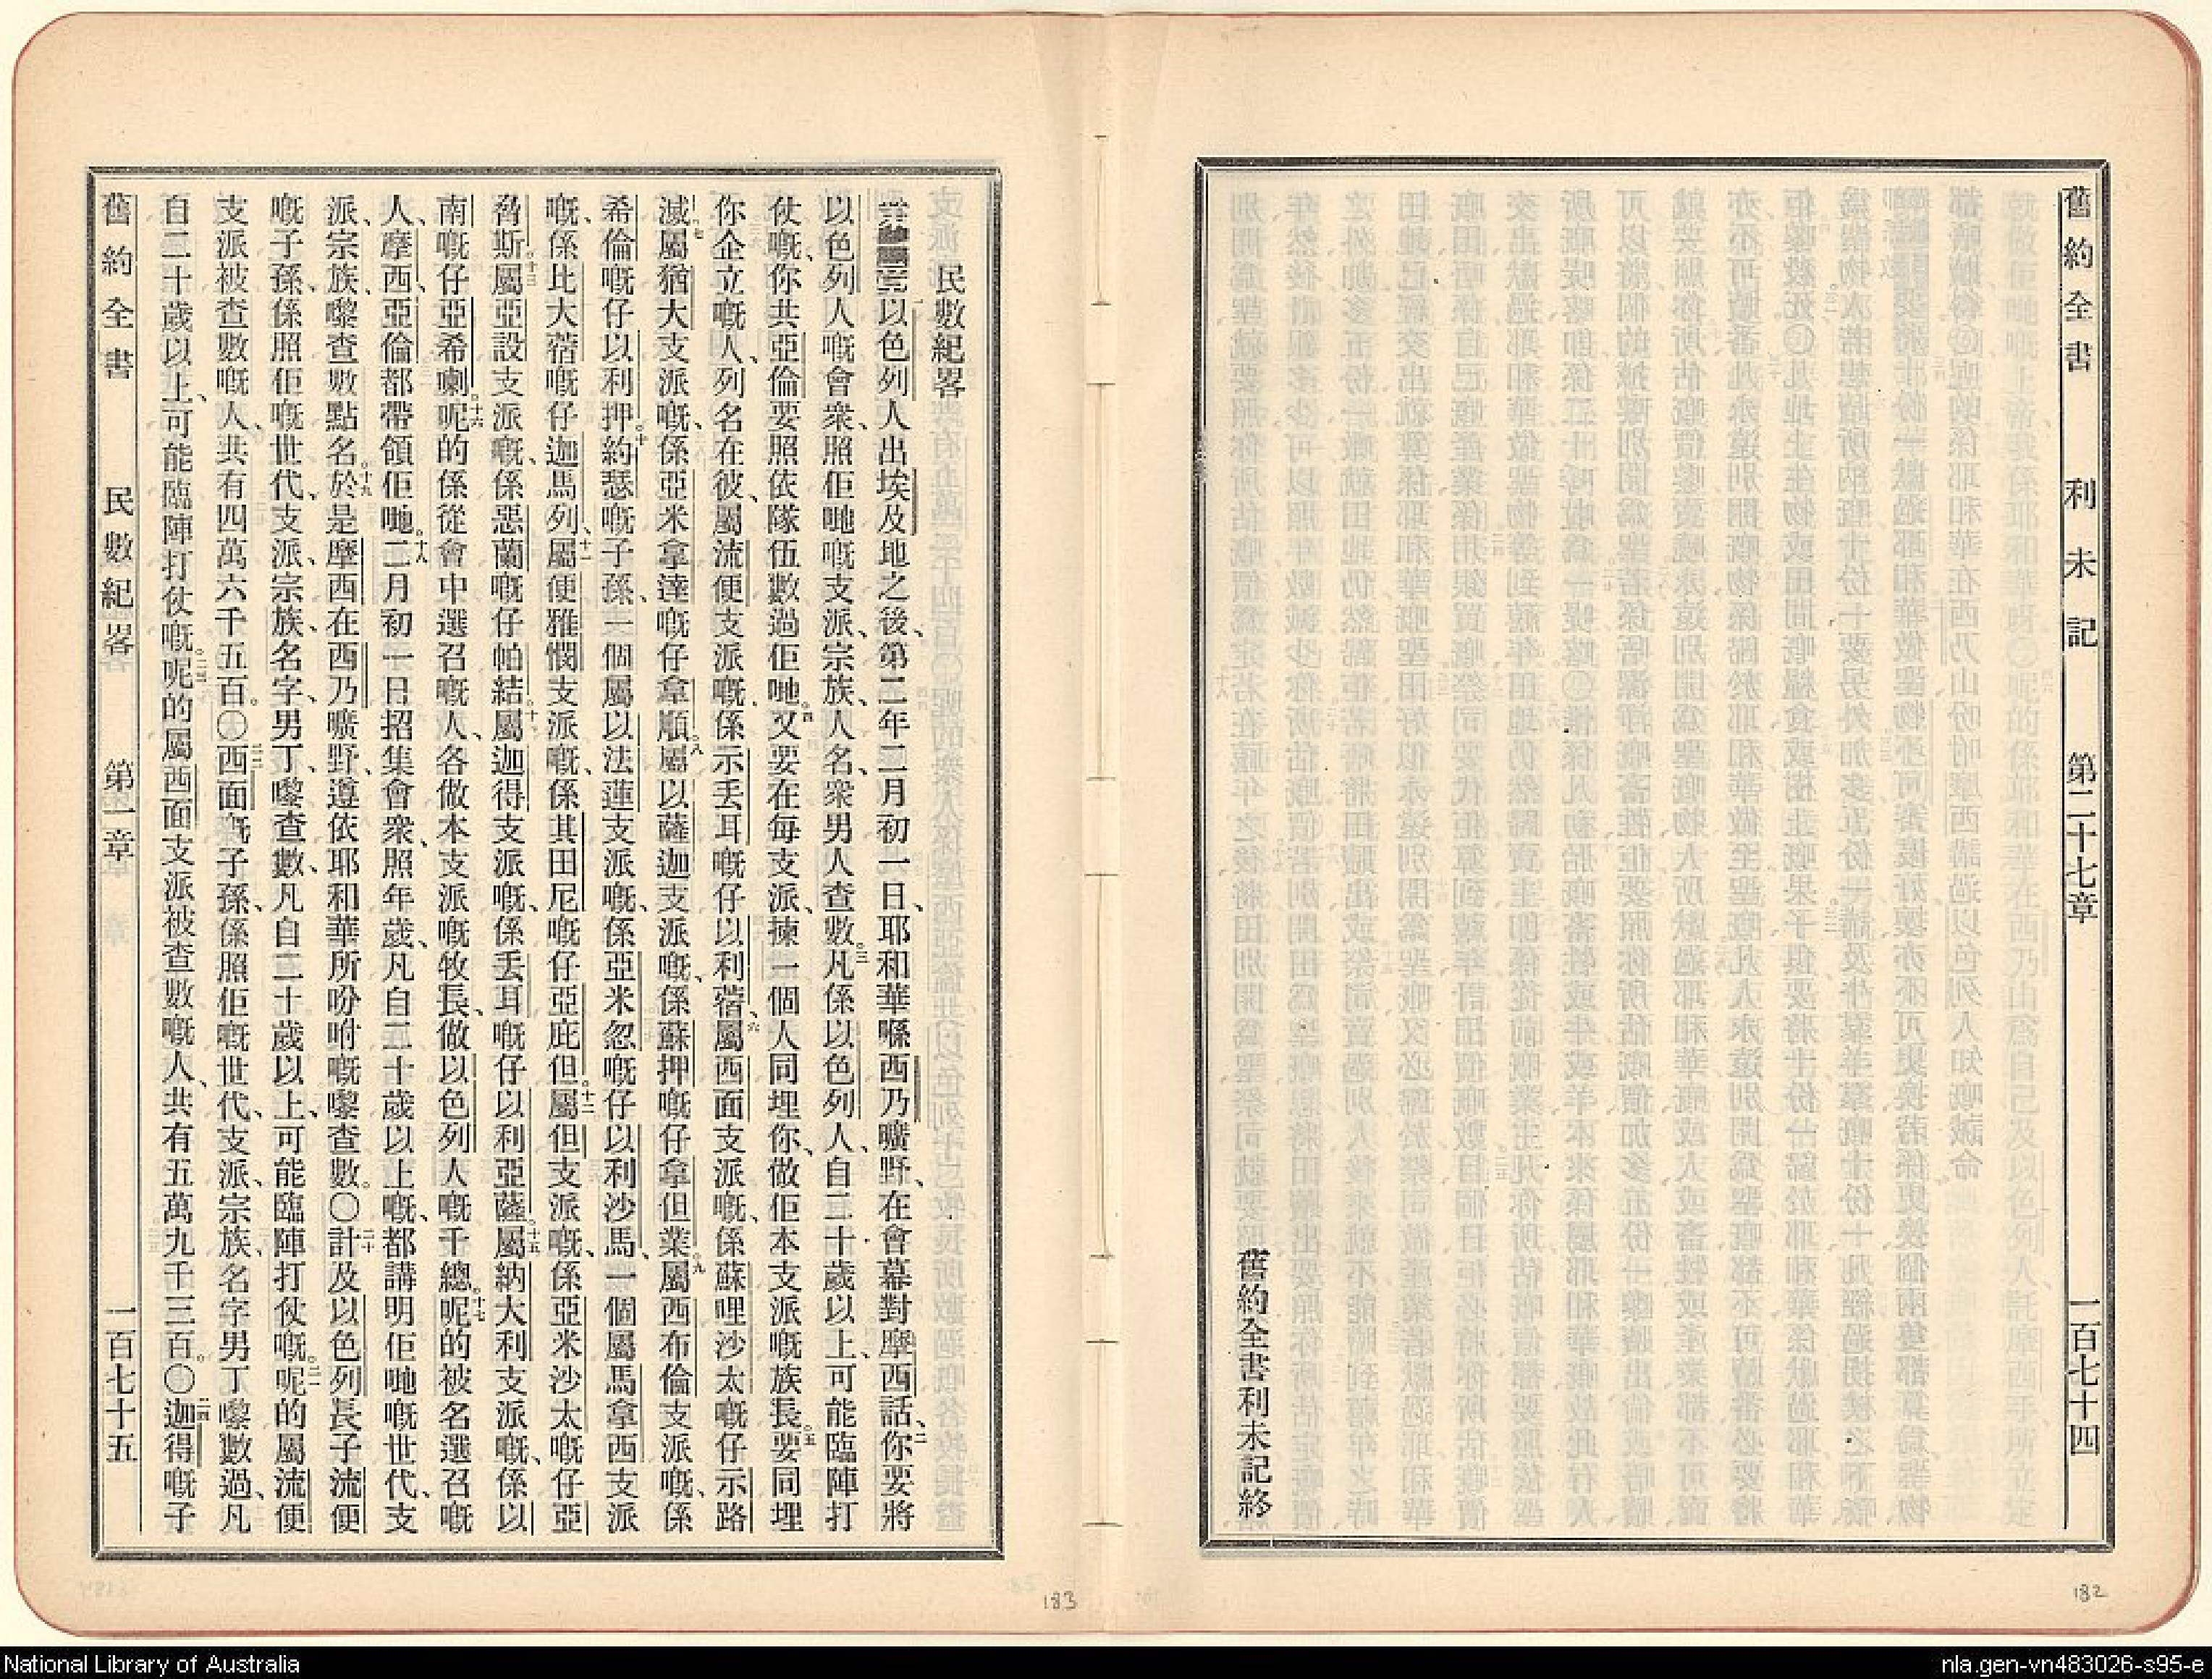 舊約全書 利未記 第二十七章 一百七十四
舊約全書利未記終
182
民數紀畧
以色列人出埃及地之後、第二年二月初一日、耶和華喺西乃曠野、在會幕對摩西話、二你要將
以色列人嘅會衆、照佢哋嘅支派、宗族、人名、衆男人查數。三凡係以色列人、自二十歲以上、可能臨陣打
仗嘅、你共亞倫要照依隊伍數過佢哋。四又要在每支派、揀一個人同埋你、做佢本支派嘅族長。五要同埋
你企立嘅人、列名在彼、屬流便支派嘅、係示丢耳嘅仔以利蓿、六屬西面支派嘅、係蘇哩沙太嘅仔示路
滅、七屬猶大支派嘅、係亞米拿達嘅仔拿順。八屬以薩迦支派嘅、係蘇押嘅仔拿但業。九屬西布倫支派嘅、係
希倫嘅仔以利押。十約瑟嘅子孫、一個屬以法蓮支派嘅、係亞米忽嘅仔以利沙馬、一個屬馬拿西支派
嘅、係比大蓿嘅仔迦馬列、十一屬便雅憫支派嘅、係其田尼嘅仔亞庇但。十二屬但支派嘅、係亞米沙太嘅仔亞
希斯。十三屬亞設支派嘅、係惡蘭嘅仔帕結。十四屬迦得支派嘅、係丢耳嘅仔以利亞薩。十五屬納大利支派嘅、係以
南嘅仔亞希喇。十六呢的係從會中選召嘅人、各做本支派嘅牧長、做以色列人嘅千總。十七呢的被名選召嘅
人、摩西、亞倫都帶領佢哋。十八二月初一日招集會衆、照年歲、凡自二十歲以上嘅、都講明佢哋嘅世代、支
派、宗族、嚟查數點名。十九於是摩西在西乃曠野、遵依耶和華所吩咐嘅嚟查數。〇二十計及以色列長子流便
嘅子孫、係照佢嘅世代、支派、宗族、名字、男丁、嚟查數、凡自二十歲以上、可能臨陣打仗嘅。二一呢的屬流便
支派被查數嘅人、共有四萬六千五百。〇二二西面嘅子孫、係照佢嘅世代、支派、宗族、名字男丁嚟數過、凡
自二十歲以上、可能臨陣打仗嘅。二三呢的屬西面支派被查數嘅人、共有五萬九千三百。〇二四迦得嘅子
舊約全書 民數紀畧 第一章 一百七十五
183
National Library of Australia
nla.gen-vn483026-s95-e